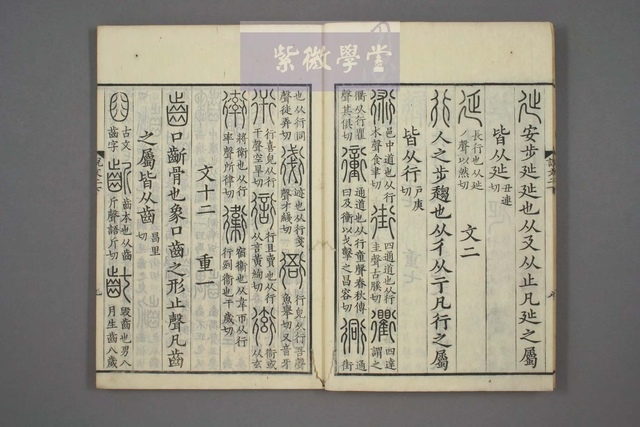 紫微學堂
㢟 安步㢟㢟也从廴从止凡㢟之屬
皆从㢟 丑連切
延 長行也从㢟丿聲以然切 文二
行 人之步趨也从彳从亍凡行之屬
皆从行 戶庚切
術 邑中道也从行朮聲食聿切 街 四通道也从行圭聲古膎切 衢 四達謂之
衢从行瞿聲其俱切 衝 通道也从行童聲春秋傳曰及衝以戈擊之昌容切 衕 通街
也从行同聲徒弄切 衙 行皃从行吾聲魚舉切又音牙
衎 行喜皃从行干聲空旱切 衒 行且賣也从行从言黃絢切 衒或从玄
衛 將衛也从行率聲所律切 衞 宿衞也从韋帀从行行列衞也于歲切
文十二 重一
齒 口齗骨也象口齒之形止聲凡齒
之屬皆从齒 昌里切
古文齒字 齗 齒本也从齒斤聲語斤切 齔 毀齒也男八月生齒八歲